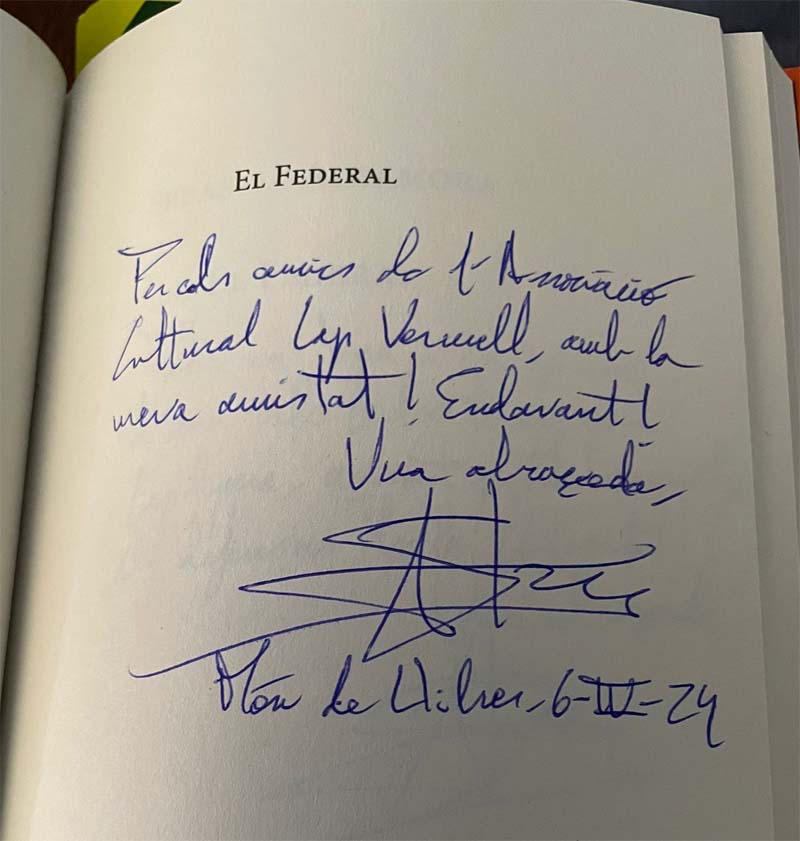 EL FEDERAL
Per als amics de l'Associació
Cultural Cap Vermell, amb la
meva amistat! Endavant!
Una abraçada,
Món de Llibres, 6-IV-24